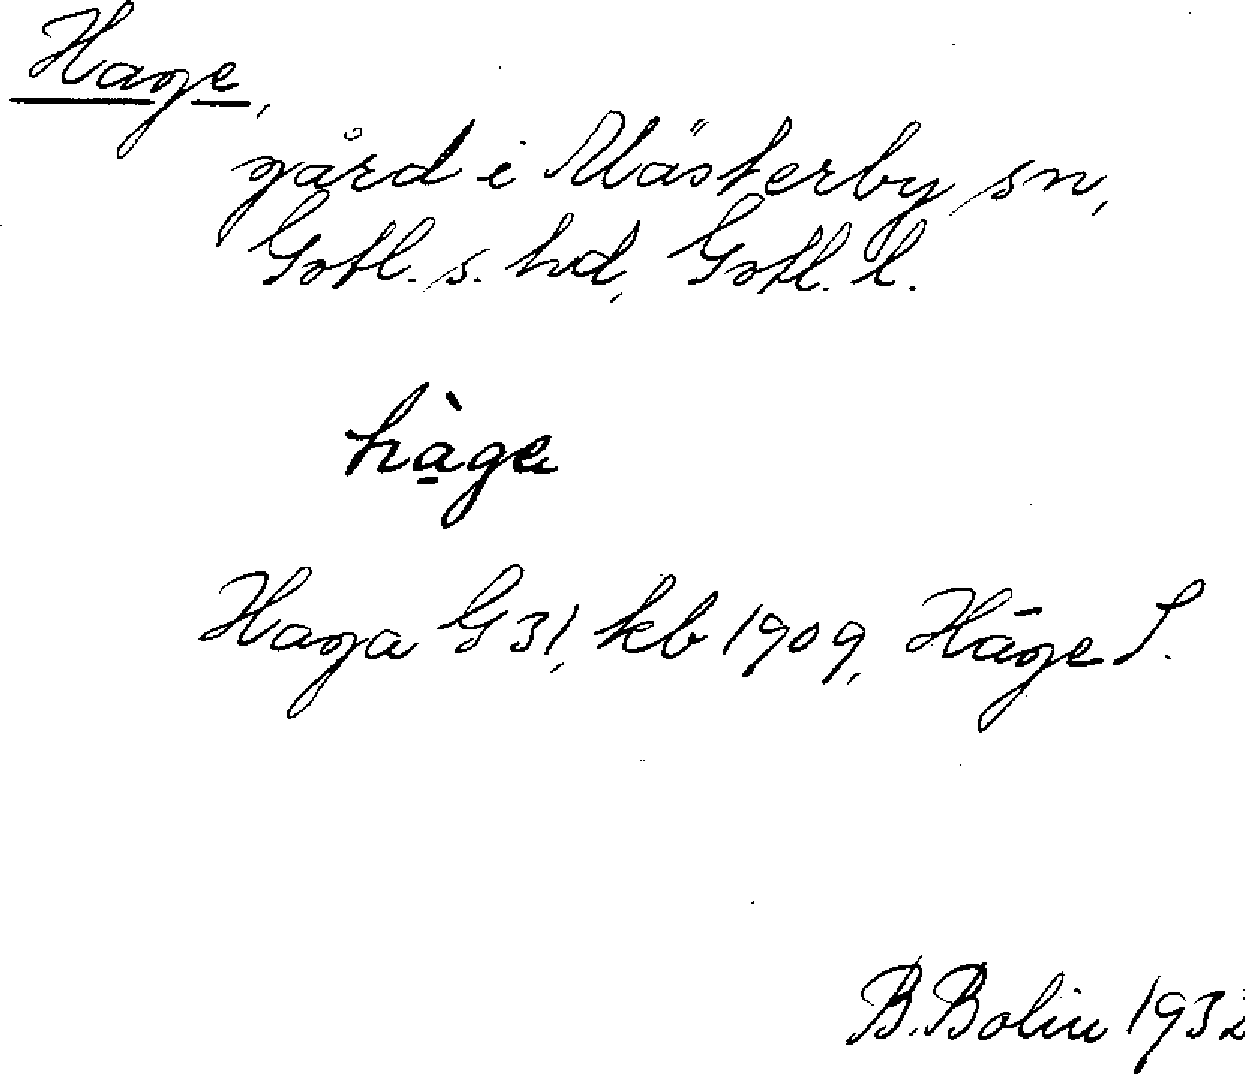 Hage,
gård i Mästerby sn,
Gotl. s. hd, Gotl. l.
hà̱ge
Haga G 31, kb 1909, Hāge S.
B. Bolin 1932